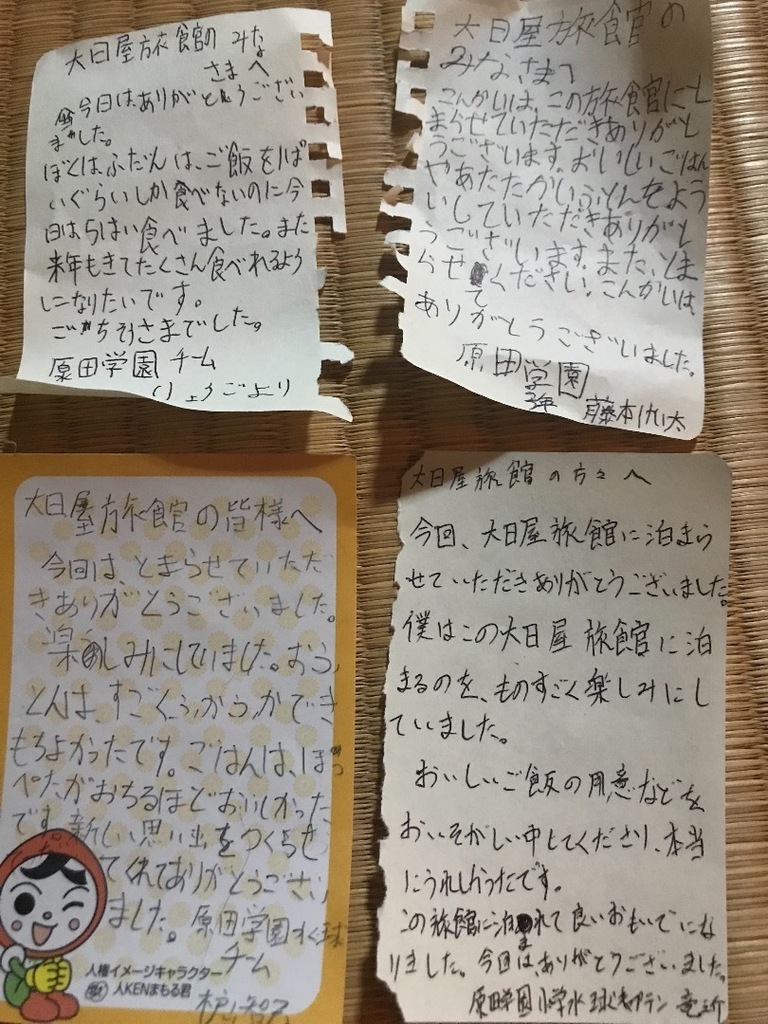 大日屋旅館の みな
さまへ
今日はありがとうござい
ました。
ぼくは、ふだんは、ご飯を1ぱ
いぐらいしか食べないのに今
日は5はい食べました。また
来年もきてたくさん食べれるよう
になりたいです。
ごちそうさまでした。
原田学園 チーム
りょうごより
大日屋旅館の
みなさまへ
こんかいは、この旅館にと
まらせていただきありがと
うございます。おいしいごはん
やあたたかいふとんをよう
いしていただきありがと
うございます。また、とま
らせてください。こんかいは、
ありがとうございました。
原田学園
3年 藤本
大日屋旅館の皆様へ
今回は、とまらせていただ
きありがとうございました。
楽しみにしていました。おふ
とんは、すごくふかふかでき
もちよかったです。ごはんは、ほっ
ぺたがおちるほどおいしかった
です。新しい思い出をつくらせ
てくれてありがとうござい
ました。原田学園水球
チーム
人権イメージキャラクター
人KENまもる君
大日屋旅館の方々へ
今回、大日屋旅館に泊まら
せていただきありがとうございました。
僕はこの大日屋旅館に泊
まるのを、ものすごく楽しみにし
ていました。
おいしいご飯の用意などを
おいそがしい中してくださり、本当
にうれしかったです。
この旅館に泊まれて良いおもいでにな
りました。今回は、ありがとうございました。
原田学園小学水球キャプテン